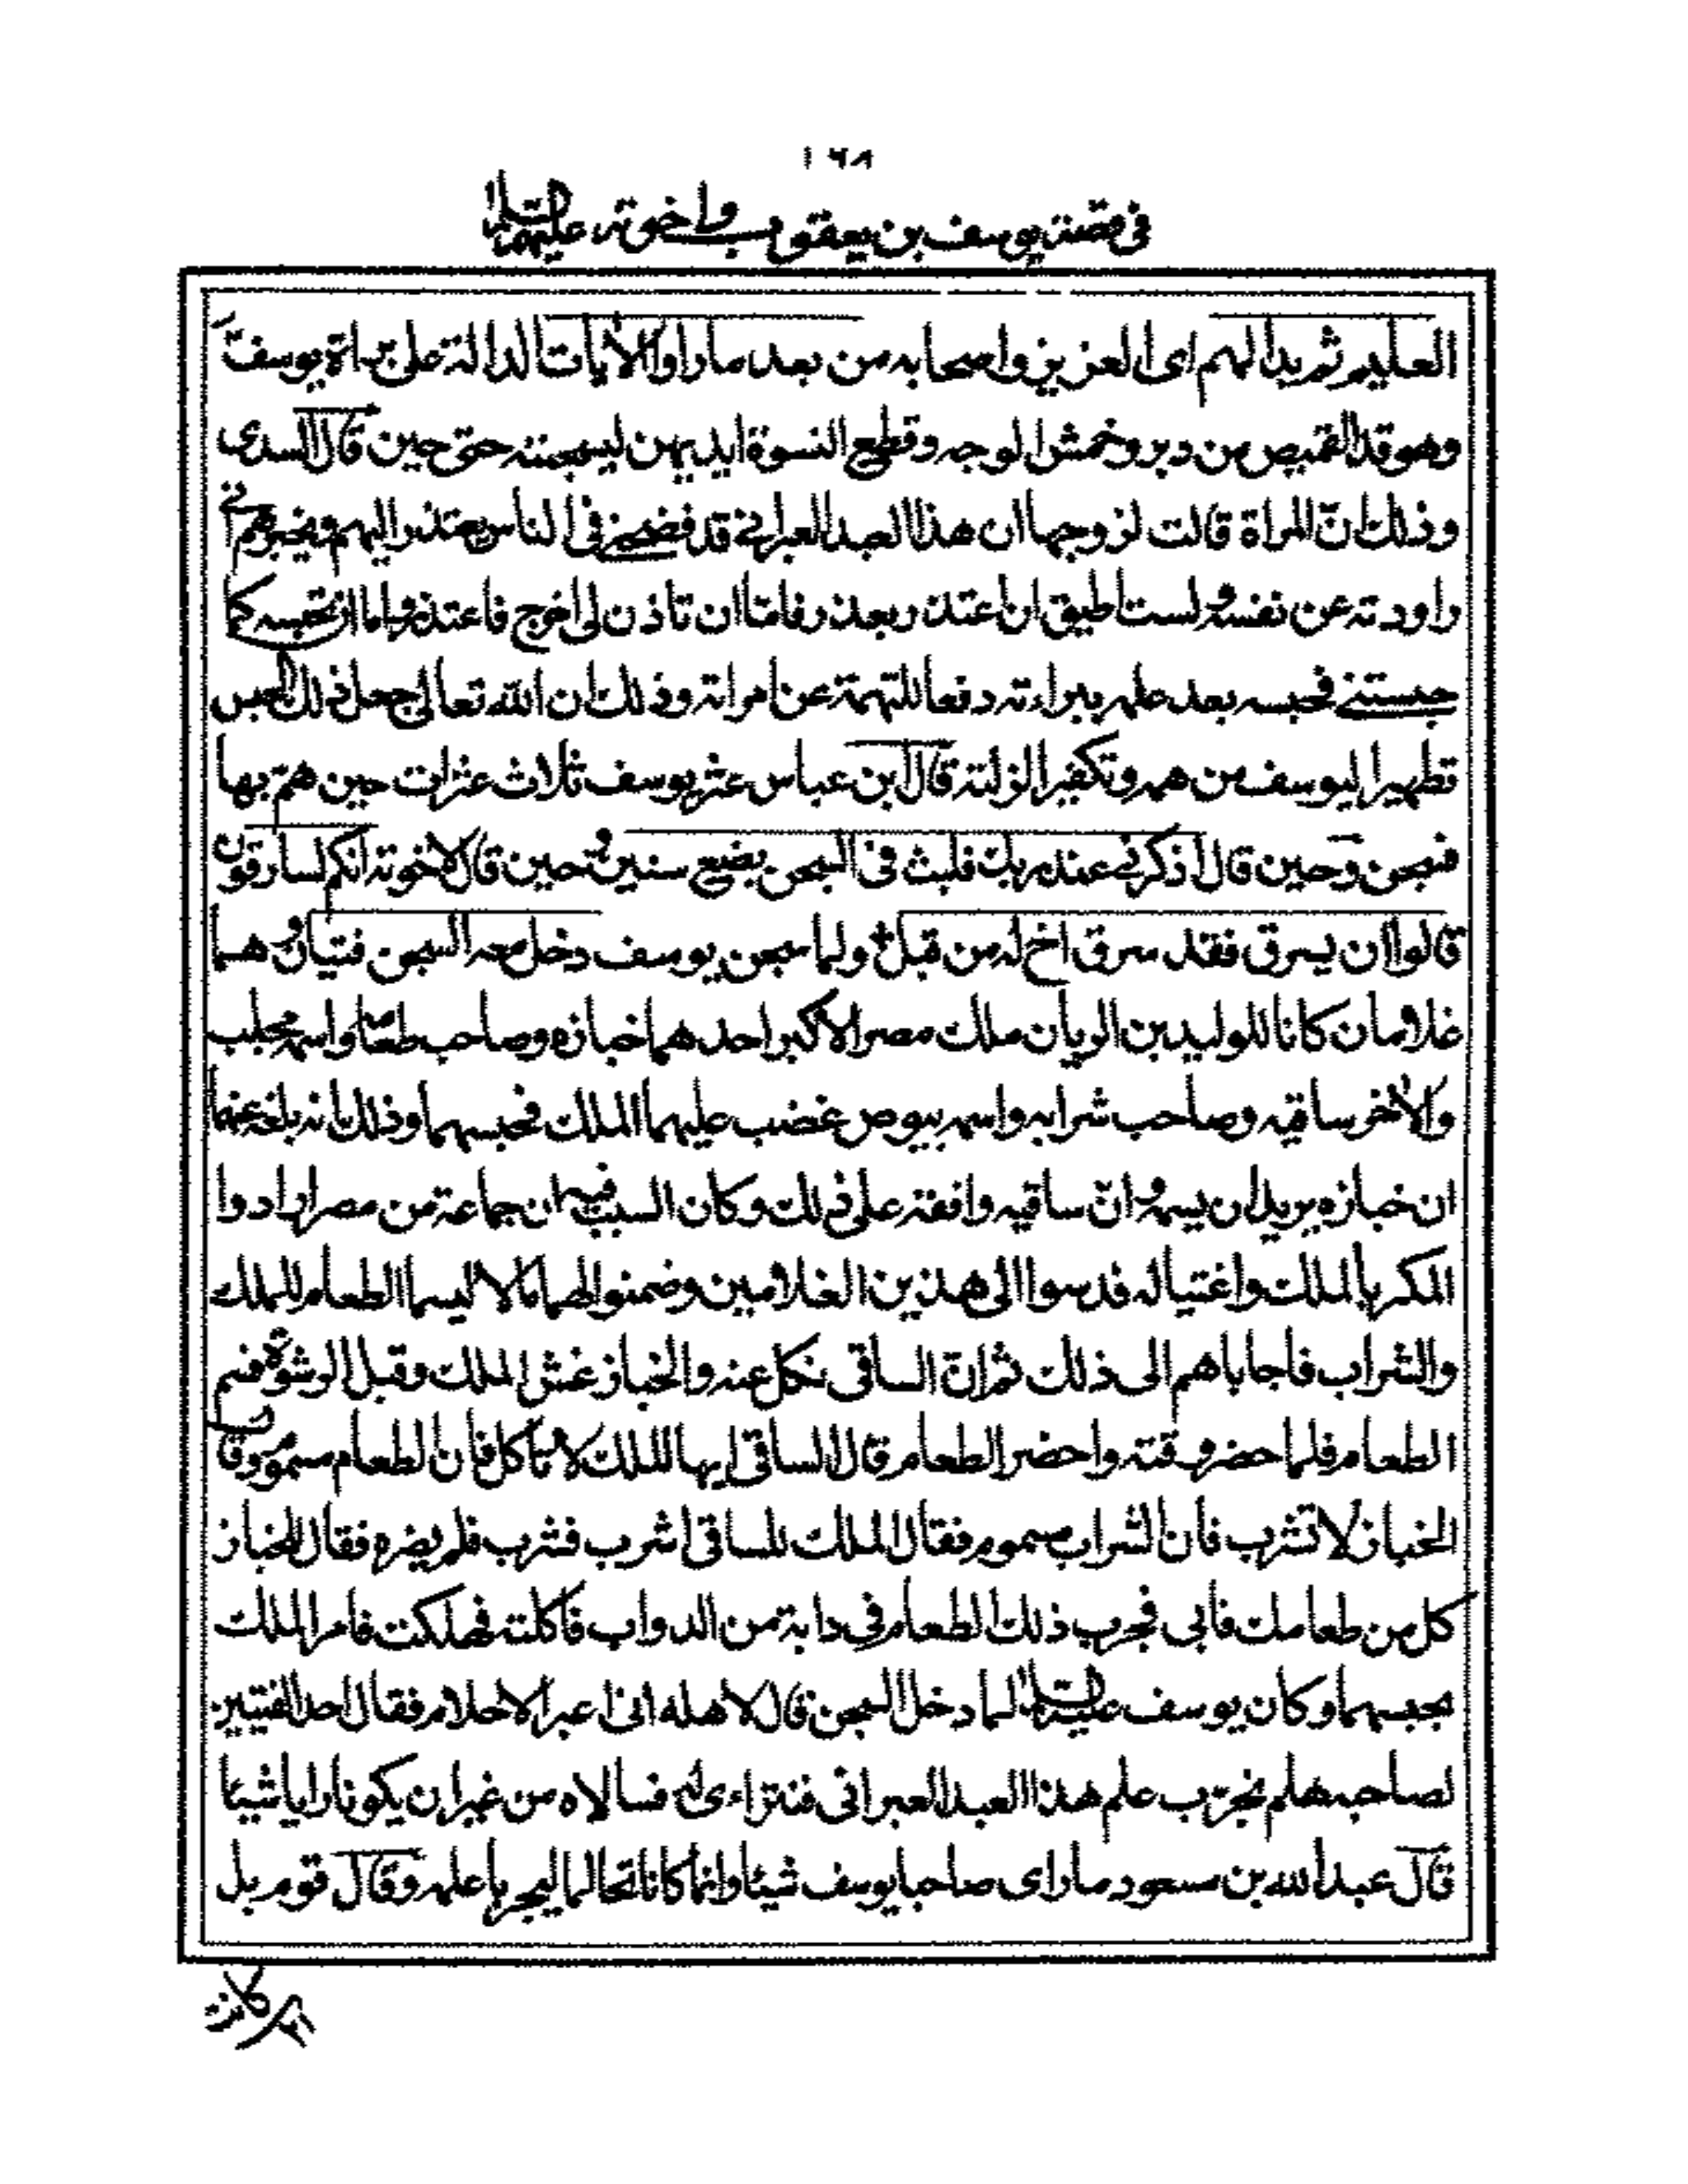 ١٦٨
في قصة يوسف بن يعقوب واخوته عليهم السلام
العليم ثم بدا لهم اى العزيز واصحابه من بعد ما راوا الايات الدالة على براة يوسف
وهو قد القميص من دبر وخمش الوجه وقطع النسوة ايديهن ليسجننه حتى حين قال السدى
وذلك انّ المراة قالت لزوجها ان هذا العبد العبرانى قد فضحنى فى الناس يعتذر اليهم ويخبرهم انى
راودته عن نفسه ولست اطيق ان اعتذر بعذر فامّا ان تاذن لى اخرج فاعتذر واما ان تحبسه كما
حبستنى فحبسه بعد علمه ببراءته دفعا للتهمة عن امراته وذلك ان الله تعالى جعل ذلك الحبس
تطهيرا ليوسف من همه وتكفيرا لزلته قال ابن عباس عثر يوسف ثلاث عثرات حين همّ بها
فسجن وحين قال اذكرنى عند ربك فلبث فى السجن بضع سنين وحين قال لاخوته انكم لسارقون
قالوا ان يسرق فقد سرق اخ له من قبل ولما سجن يوسف دخل معه السجن فتيان وهما
غلامان كانا للوليد بن الريان ملك مصر الاكبر احدهما خبازه وصاحب طعامه واسمه مجلب
والاخر ساقيه وصاحب شرابه واسمه بيوص غضب عليهما الملك فحبسهما وذلك انه بلغه عنهما
ان خبازه يريد ان يسمه وانّ ساقيه وافقه على ذلك وكان السبب فيه ان جماعة من مصر ارادوا
المكر بالملك واغتياله فدسوا الى هذين الغلامين وضمنوا لهما مالا ليسما الطعام للملك
والشراب فاجاباهم الى ذلك ثم انّ الساقى نكل عنه والخباز غش الملك وقبل الرشوة فسم
الطعام فلما حضر وقته واحضر الطعام قال الساقى ايها الملك لا تاكل فان الطعام مسموم وقال
الخباز لا تشرب فان الشراب مسموم فقال الملك للساقى اشرب فشرب فلم يضره فقال للخباز
كل من طعامك فابى فجرب ذلك الطعام فى دابة من الدواب فاكلته فهلكت فامر الملك
بحبسهما وكان يوسف عليه السلام لما دخل السجن قال لاهله انى اعبر الاحلام فقال احد الفتيين
لصاحبه هلم نجرّب علم هذا العبد العبرانى فنتراءى له فسالاه من غير ان يكونا رايا شيئا
قال عبد الله بن مسعود ما راى صاحبا يوسف شيئا وانما كانا تحالما ليجربا علمه وقال قوم بل